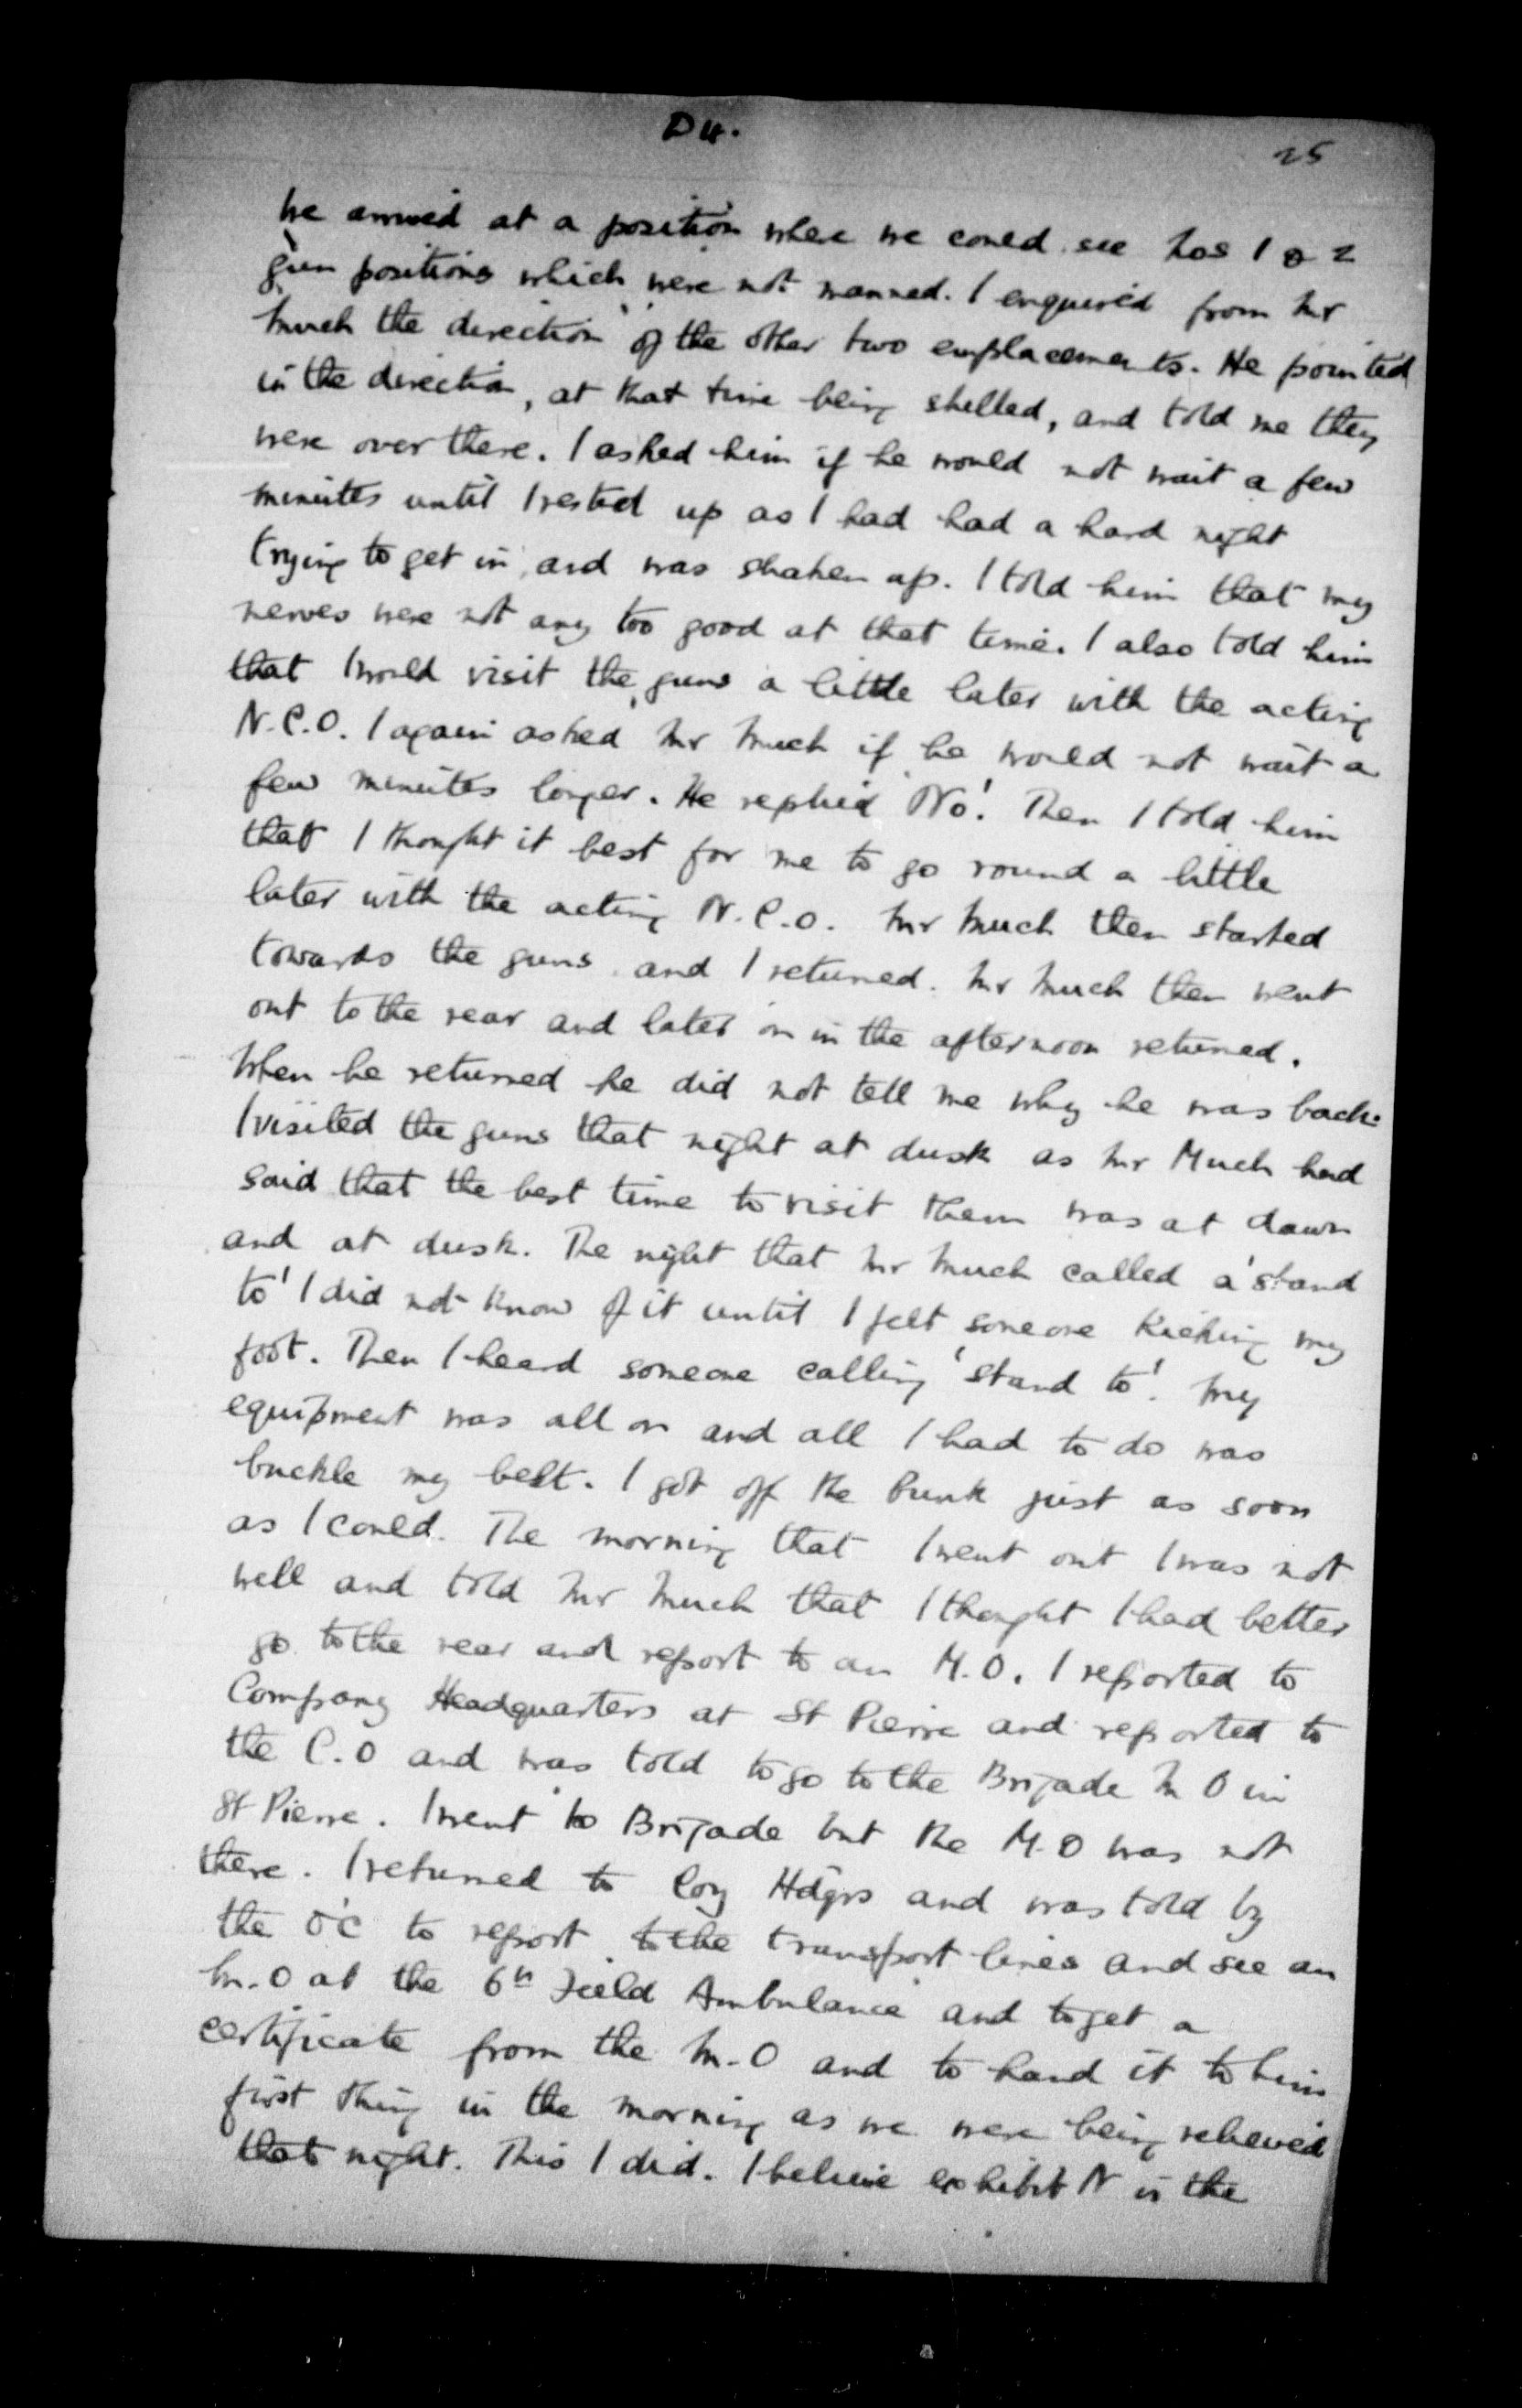 D4.
25
We arrived at a position where we could see Nos 1 & 2
gun positions which were not manned. I enquired from Mr
Much the direction of the other two emplacements. He pointed
in the direction, at that time being shelled, and told me they
were over there. I asked him if he would not wait a few
minutes until I rested up as I had had a hard night
trying to get in, and was shaken up. I told him that my
nerves were not any too good at that time. I also told him
that I would visit the guns a little later with the acting
N.C.O. I again asked Mr Much if he would not wait a
few minutes longer. He replied 'No'. Then I told him
that I thought it best for me to go round a little
later with the acting N.C.O. Mr Much then started
towards the guns and I returned. Mr Much then went
out to the rear and later on in the afternoon returned.
When he returned he did not tell me why he was back.
I visited the guns that night at dusk as Mr Much had
said that the best time to visit them was at dawn
and at dusk. The night that Mr Much called a 'stand
to' I did not know of it until I felt someone kicking my
foot. Then I heard someone calling 'stand to'. My
equipment was all on and all I had to do was
buckle my belt. I got off the bunk just as soon
as I could. The morning that I went out I was not
well and told Mr Much that I thought I had better
go to the rear and report to an M.O. I reported to
Company Headquarters at St Pierre and reported to
the C.O and was told to go to the Brigade M O in
St Pierre. I went to Brigade but the M.O was not
there. I returned to Coy Hdqrs and was told by
the O'C to report to the transport lines and see an
M.O at the 6th Field Ambulance and to get a
certificate from the M.O and to hand it to him
first thing in the morning as we were being relieved
that night. This I did. I believe exhibit N is the